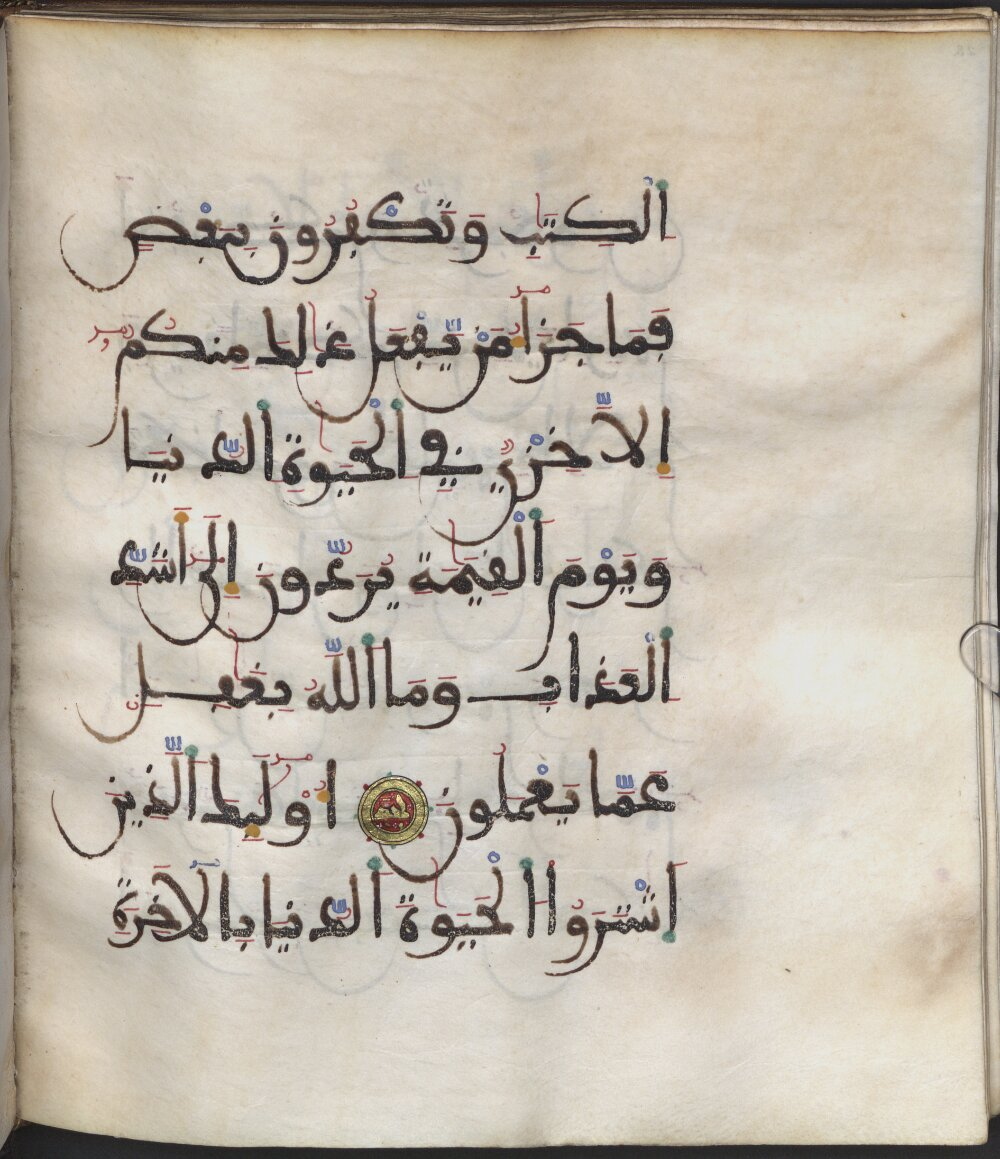 الْكِتَٰبِ وَتَكْفُرُونَ بِبَعْضٍ
فَمَا جَزَآءُ مَنْ يَّفْعَلُ ذَٰلِكَ مِنكُمُۥٓ
إِلَّا خِزْيٌ فِي الْحَيَوٰةِ الدُّنْيَا
وَيَوْمَ الْقِيَٰمَةِ يُرَدُّونَ إِلَىٰٓ أَشَدِّ
الْعَذَابِ وَمَا اللَّهُ بِغَٰفِلٍ
عَمَّا يَعْمَلُونَ أُوْلَٰٓئِكَ الَّذِينَ
اشْتَرَوُا الْحَيَوٰةَ الدُّنْيَا بِالَاخِرَةِ